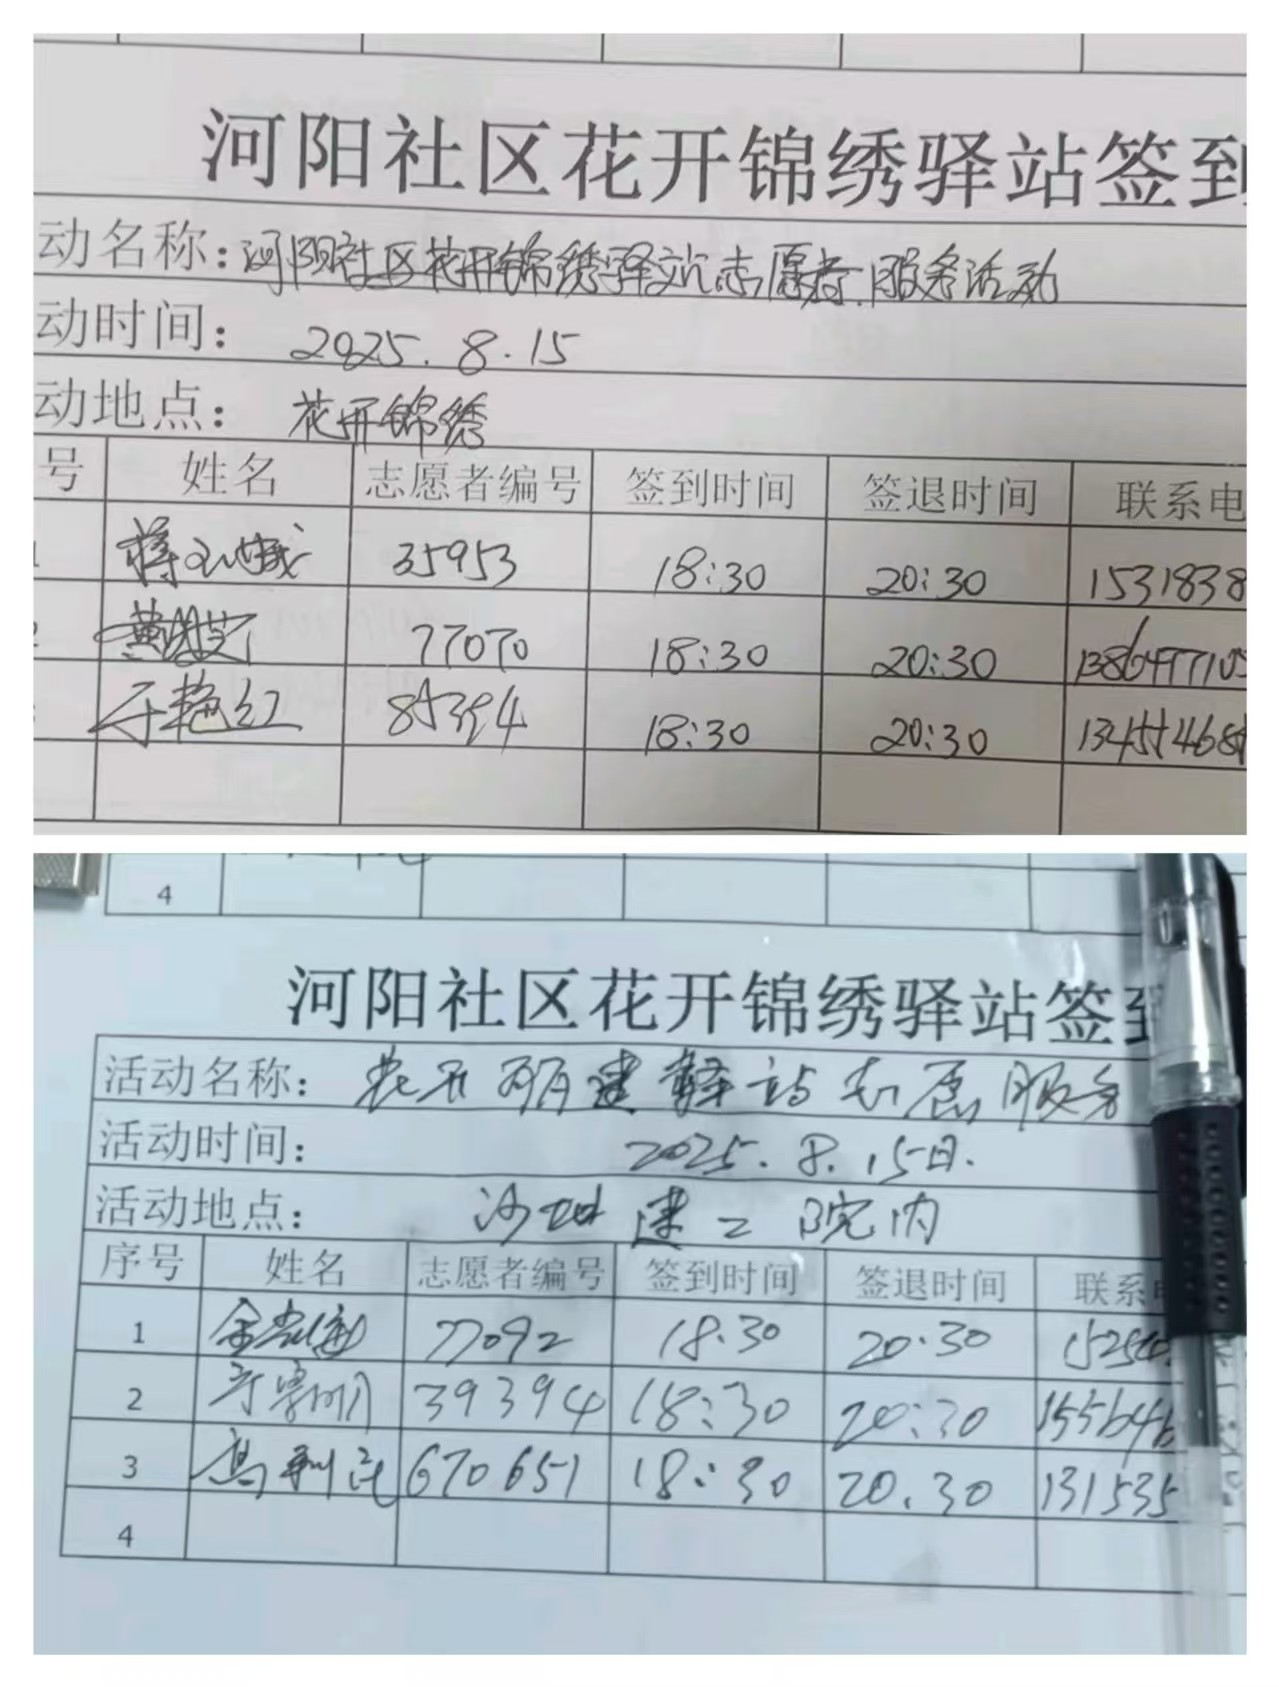 河阳社区花开锦绣驿站签到
动名称：河阳社区花开锦绣驿站志愿者服务活动
动时间： 2025.8.15
动地点： 花开锦绣
号 姓名 志愿者编号 签到时间 签退时间 联系电
35953 18:30 20:30 1531838
77070 18:30 20:30
于艳红 85394 18:30 20:30
4
河阳社区花开锦绣驿站签到
活动名称： 花开丽建驿站志愿服务
活动时间： 2025.8.15日.
活动地点： 建工院内
序号 姓名 志愿者编号 签到时间 签退时间 联系
1 77092 18:30 20:30
2 39394 18:30 20:30
3 高利民 670651 18:30 20.30 131535
4